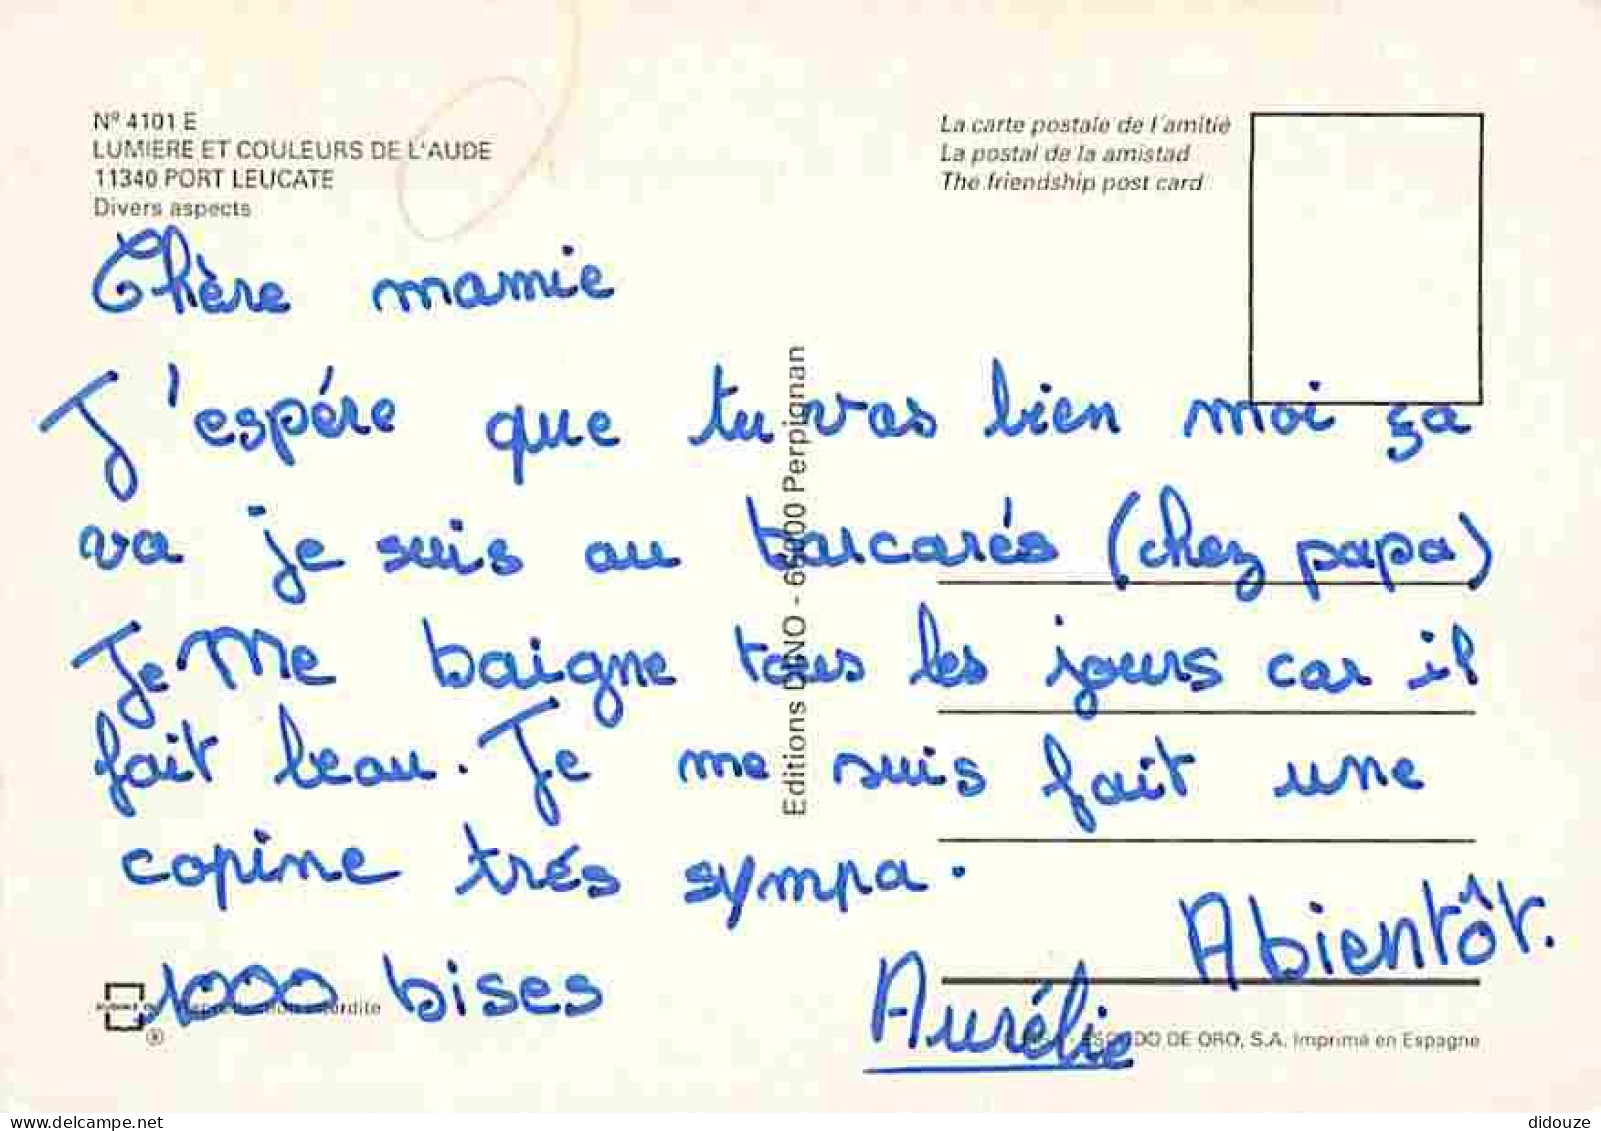 Nº 4101 E
LUMIERE ET COULEURS DE L'AUDE
11340 PORT LEUCATE
Divers aspects
La carte postale de l'amitié
La postal de la amistad
The friendship post card
Chère mamie
J'espére que tu vas bien moi ça
va je suis au barcarés (chez papa)
Je Me baigne tous les jours car il
fait beau. Je me suis fait une
copine trés sympa.
A bientôt.
1000 bises
Aurélie
Editions DINO - 66000 Perpignan
Reproduction interdite
ESCUDO DE ORO, S.A. Imprimé en Espagne
didouze